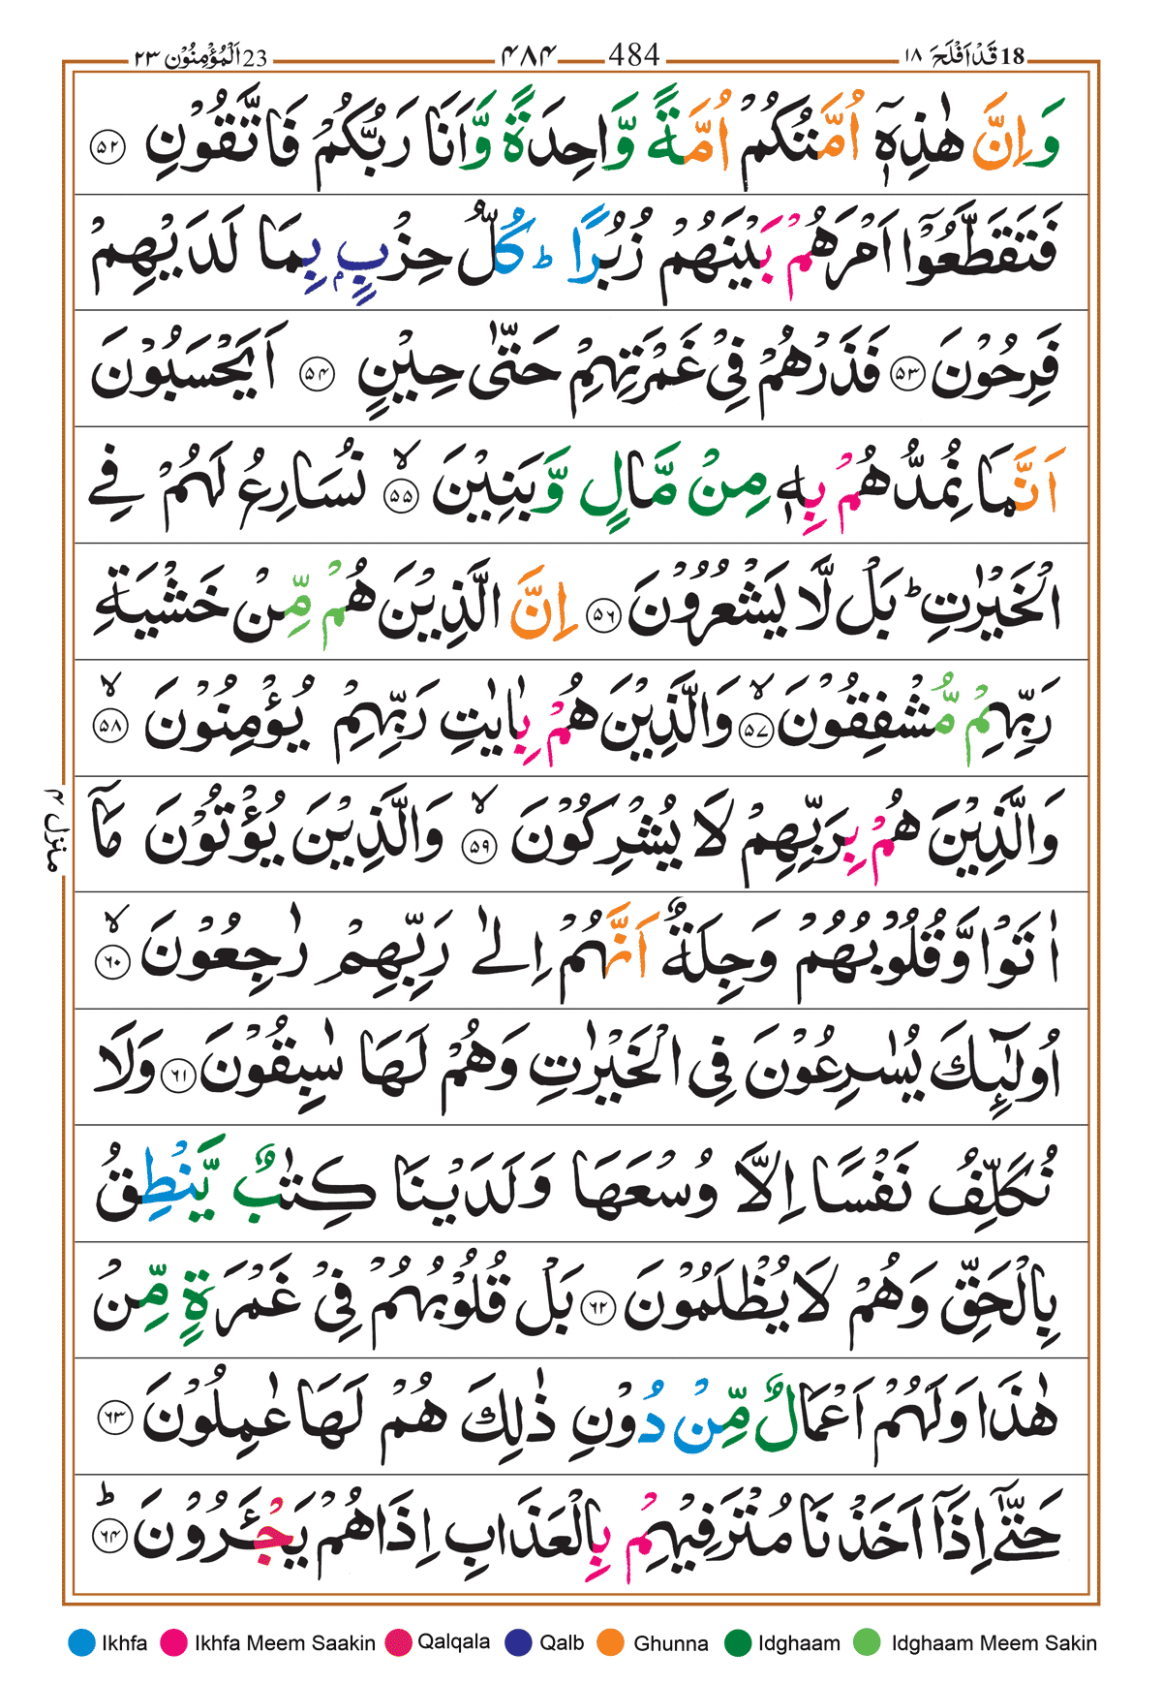 18 قَدْ اَفْلَحَ ١٨ 484 ۴۸۴ 23 اَلْمُؤْمِنُوْن ٢٣
وَاِنَّ هٰذِهٖۤ اُمَّتُكُمْ اُمَّةً وَّاحِدَةً وَّاَنَا رَبُّكُمْ فَاتَّقُوْنِ ﴿۵۲﴾
فَتَقَطَّعُوْۤا اَمْرَهُمْ بَيْنَهُمْ زُبُرًا ؕ كُلُّ حِزْبٍۭ بِمَا لَدَيْهِمْ
فَرِحُوْنَ ﴿۵۳﴾ فَذَرْهُمْ فِىْ غَمْرَتِهِمْ حَتّٰى حِيْنٍ ﴿۵۴﴾ اَيَحْسَبُوْنَ
اَنَّمَا نُمِدُّهُمْ بِهٖ مِنْ مَّالٍ وَّبَنِيْنَ ۙ ﴿۵۵﴾ نُسَارِعُ لَهُمْ فِى
الْخَيْرٰتِ ؕ بَلْ لَّا يَشْعُرُوْنَ ﴿۵۶﴾ اِنَّ الَّذِيْنَ هُمْ مِّنْ خَشْيَةِ
رَبِّهِمْ مُّشْفِقُوْنَ ۙ ﴿۵۷﴾ وَالَّذِيْنَ هُمْ بِاٰيٰتِ رَبِّهِمْ يُؤْمِنُوْنَ ۙ ﴿۵۸﴾
وَالَّذِيْنَ هُمْ بِرَبِّهِمْ لَا يُشْرِكُوْنَ ۙ ﴿۵۹﴾ وَالَّذِيْنَ يُؤْتُوْنَ مَاۤ
اٰتَوْا وَّقُلُوْبُهُمْ وَجِلَةٌ اَنَّهُمْ اِلٰى رَبِّهِمْ رٰجِعُوْنَ ۙ ﴿۶۰﴾
اُولٰٓئِكَ يُسٰرِعُوْنَ فِى الْخَيْرٰتِ وَهُمْ لَهَا سٰبِقُوْنَ ﴿۶۱﴾ وَلَا
نُكَلِّفُ نَفْسًا اِلَّا وُسْعَهَا وَلَدَيْنَا كِتٰبٌ يَّنْطِقُ
بِالْحَقِّ وَهُمْ لَا يُظْلَمُوْنَ ﴿۶۲﴾ بَلْ قُلُوْبُهُمْ فِىْ غَمْرَةٍ مِّنْ
هٰذَا وَلَهُمْ اَعْمَالٌ مِّنْ دُوْنِ ذٰلِكَ هُمْ لَهَا عٰمِلُوْنَ ﴿۶۳﴾
حَتّٰۤى اِذَاۤ اَخَذْنَا مُتْرَفِيْهِمْ بِالْعَذَابِ اِذَا هُمْ يَجْــَٔرُوْنَ ؕ ﴿۶۴﴾
منزل ۴
Ikhfa Ikhfa Meem Saakin Qalqala Qalb Ghunna Idghaam Idghaam Meem Sakin